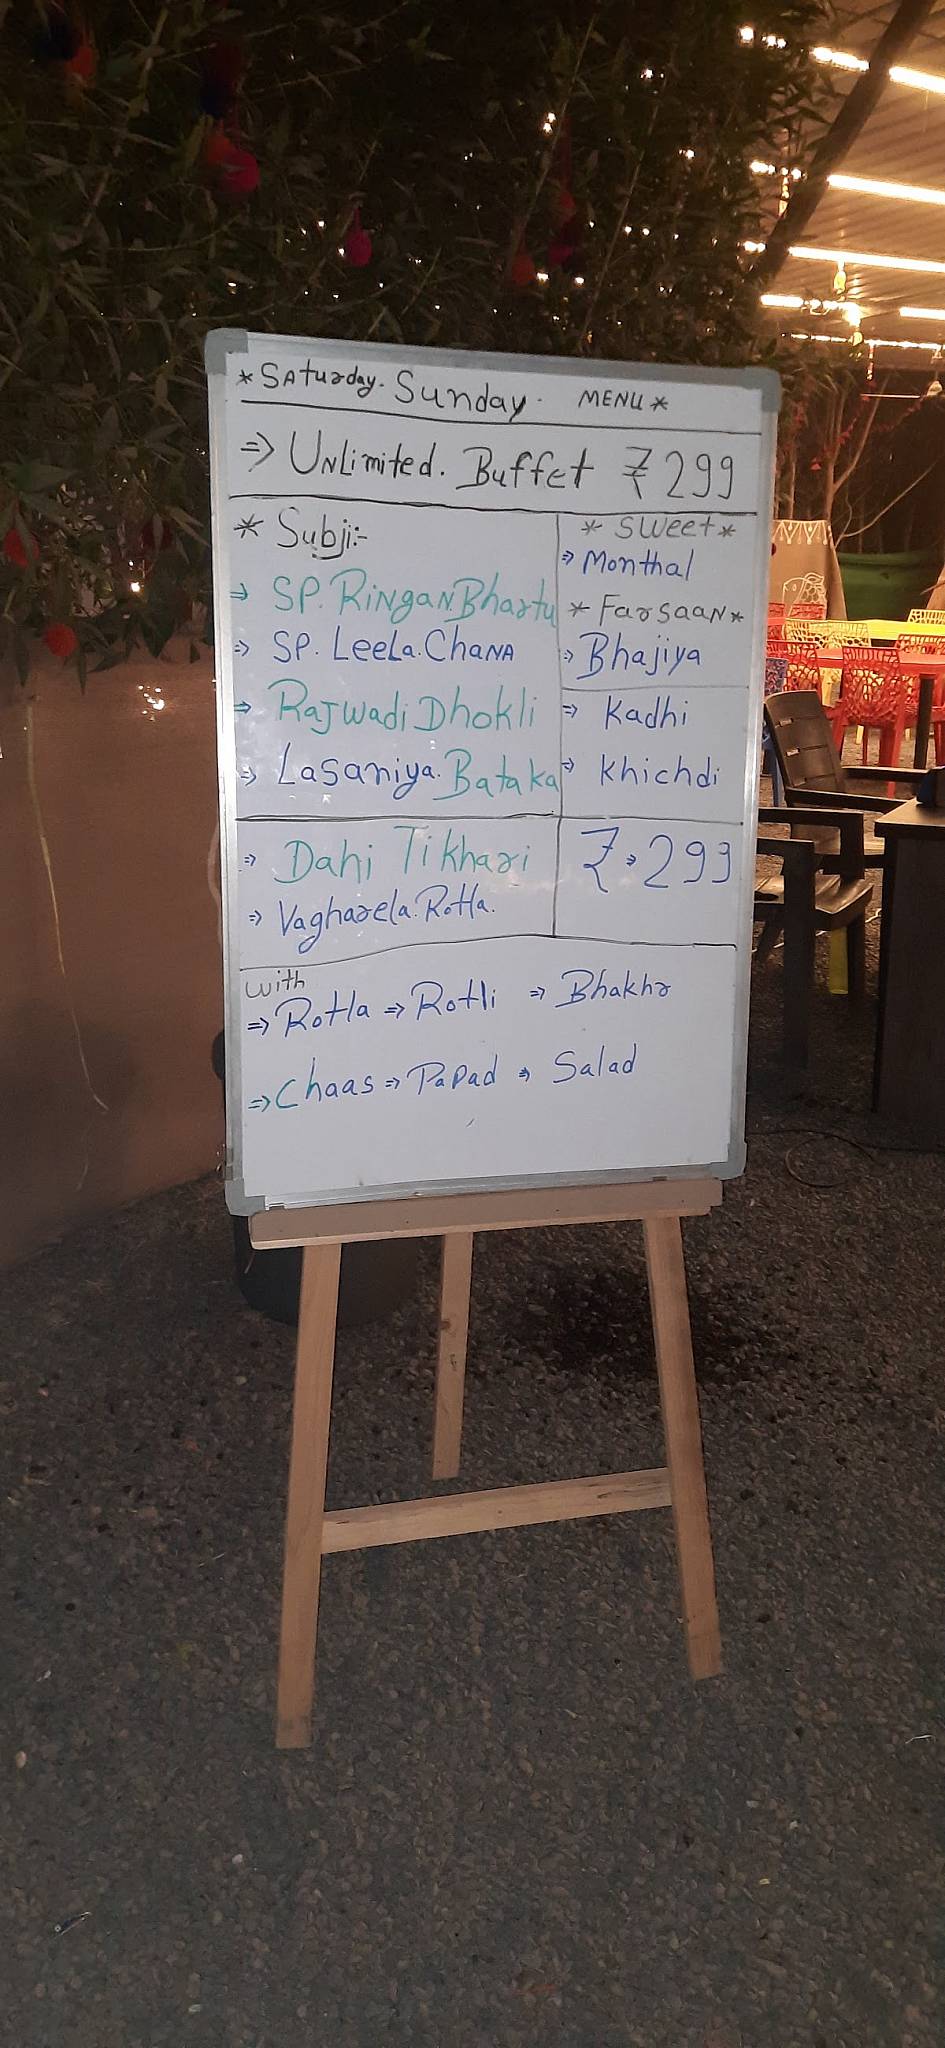 * Saturday. Sunday. MENU *
⇒ Unlimited. Buffet ₹ 299
* Subji:-
⇒ SP. Ringan Bhartu
⇒ SP. Leela. Chana
⇒ Rajwadi Dhokli
⇒ Lasaniya. Bataka
* Sweet *
⇒ Monthal
* Farsaan *
⇒ Bhajiya
⇒ Kadhi
⇒ Khichdi
⇒ Dahi Tikhari
⇒ Vagharela. Rotla.
₹ ⇒ 299
with
⇒ Rotla ⇒ Rotli ⇒ Bhakhr
⇒ Chaas ⇒ Papad ⇒ Salad